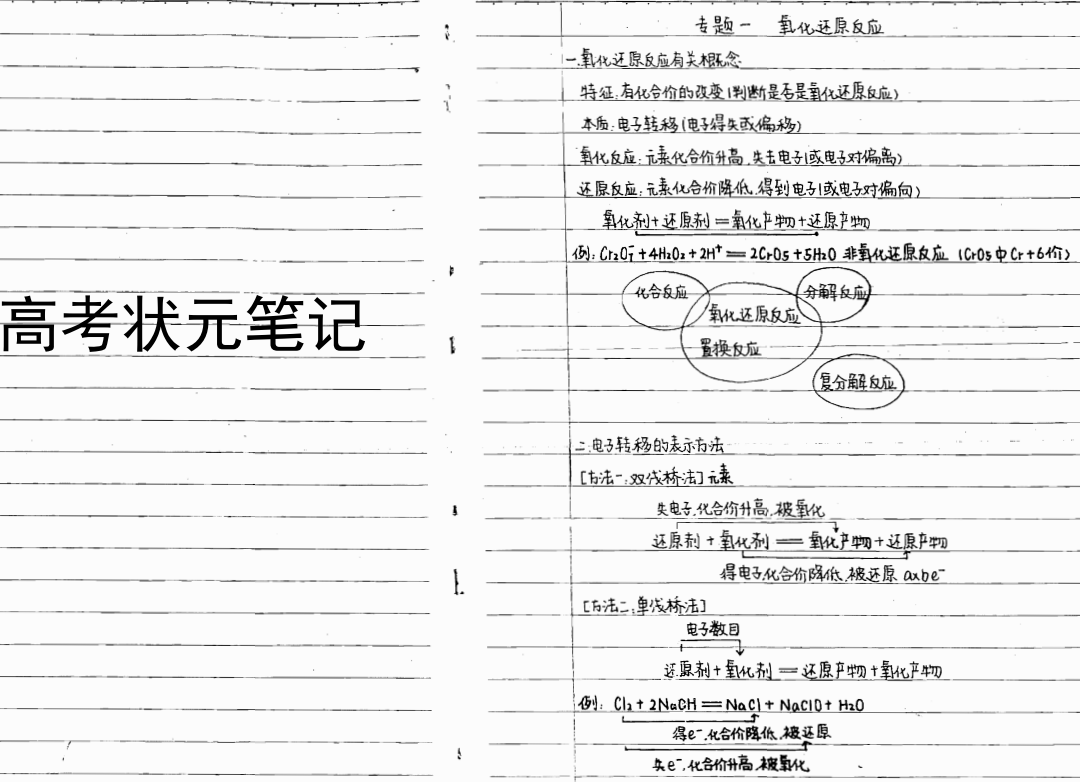 高考状元笔记
专题一 氧化还原反应
一.氧化还原反应有关概念
特征:有化合价的改变(判断是否是氧化还原反应)
本质:电子转移(电子得失或偏移)
氧化反应:元素化合价升高,失去电子(或电子对偏离)
还原反应:元素化合价降低,得到电子(或电子对偏向)
氧化剂+还原剂=氧化产物+还原产物
例:Cr₂O₇⁻+4H₂O₂+2H⁺=2CrO₅+5H₂O 非氧化还原反应 (CrO₅中Cr+6价)
化合反应
分解反应
氧化还原反应
置换反应
复分解反应
二.电子转移的表示方法
[方法一:双线桥法]元素
失电子,化合价升高,被氧化
还原剂+氧化剂=氧化产物+还原产物
得电子化合价降低,被还原 a×be⁻
[方法二:单线桥法]
电子数目
还原剂+氧化剂=还原产物+氧化产物
例:Cl₂+2NaOH=NaCl+NaClO+H₂O
得e⁻,化合价降低,被还原
失e⁻,化合价升高,被氧化